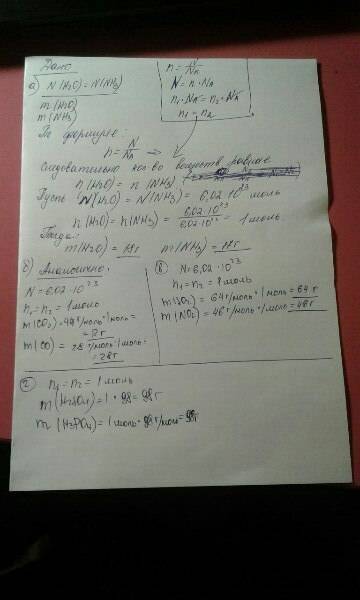 Дано
а) N(H2O) = N(NH3)
m(H2O)
m(NH3)
n = N/NA
N = n · NA
n1 · NA = n2 · NA
n1 = n2
По формуле:
n = N/NA ⇒
Следовательно кол-во веществ равные
n(H2O) = n(NH3)
Пусть N(H2O) = N(NH3) = 6,02 · 10^23 моль
n(H2O) = n(NH3) = 6,02·10^23/6,02·10^23 = 1 моль.
Тогда:
m(H2O) = 18г m(NH3) = 17г
б) Аналогично.
N = 6,02 · 10^23
n1 = n2 = 1 моль
m(CO2) = 44 г/моль · 1 моль =
m(CO) = 28 г/моль · 1 моль =
= 28 г
в) N = 6,02 · 10^23
n1 = n2 = 1 моль
m(SO2) = 64 г/моль · 1 моль = 64 г
m(NO2) = 46 г/моль · 1 моль = 46 г
2 n1 = n2 = 1 моль
m(H2SO4) = 1 · 98 = 98г
m(H3PO4) = 1 моль · 98 г/моль = 98г